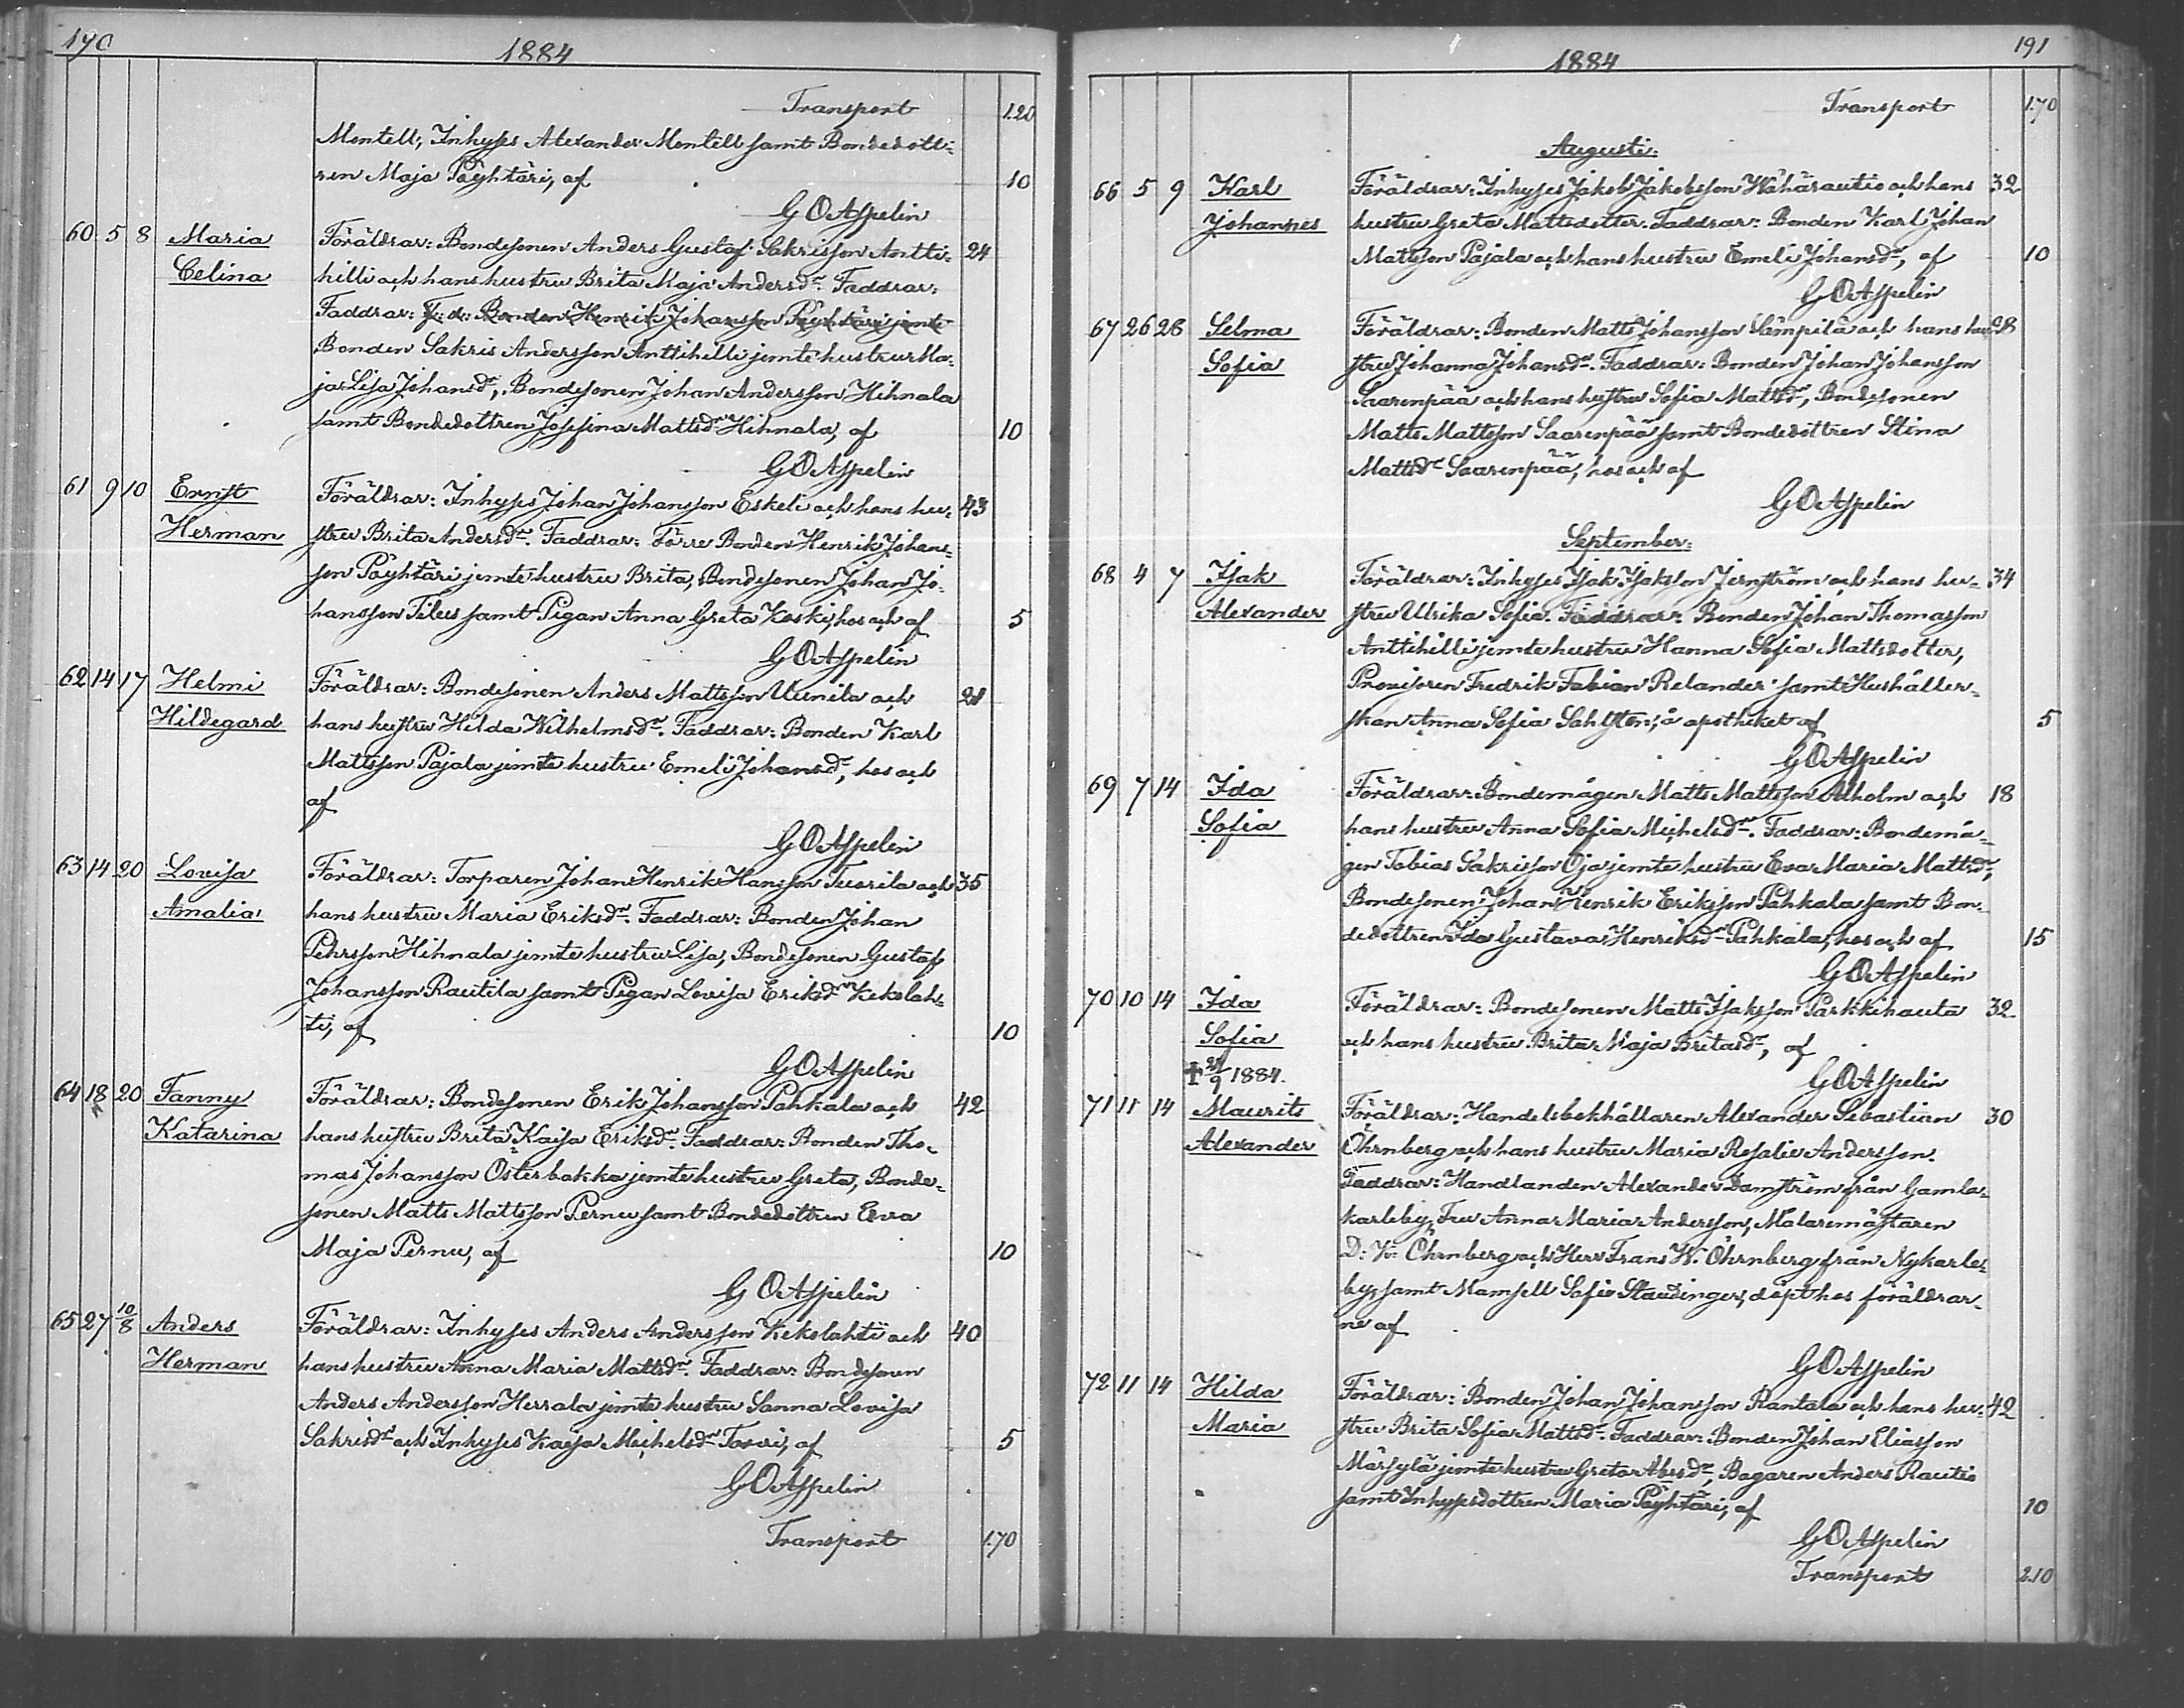 190
1884
Transport 1.20
Montell, Inhyses Alexander Montell samt Bondedott-
ren Maja Pöyhtäri, af 10
G O Aspelin
60 5 8 Maria Föräldrar: Bondesonen Anders Gustaf Sakrisson Antti- 24
Celina hilli och hans hustru Brita Maja Andersdr. Faddrar:
Faddrar: F. d. Bonden Henrik Johansson Pöyhtäri jemte
Bonden Sakris Andersson Anttihilli jemte hustru Ma-
ja Lisa Johansdr, Bondesonen Johan Andersson Hihnala
samt Bondedottren Josefina Mattsdr Hihnala, af 10
G O Aspelin
61 9 10 Ernst Föräldrar: Inhyses Johan Johansson Eskeli och hans hu- 43
Herman stru Brita Andersdr. Faddrar: Förre Bonden Henrik Johans-
son Pöyhtäri jemte hustru Brita, Bondesonen Johan Jo-
hansson Tilus samt Pigan Anna Greta Koski, hos och af 5
G O Aspelin
62 14 17 Helmi Föräldrar: Bondesonen Anders Mattsson Uunila och 21
Hildegard hans hustru Hilda Wilhelmsdr. Faddrar: Bonden Karl
Mattsson Pajala jemte hustru Emeli Johansdr, hos och
af
G O Aspelin
63 14 20 Lovisa Föräldrar: Torparen Johan Henrik Hansson Tuorila och 35
Amalia hans hustru Maria Eriksdr. Faddrar: Bonden Johan
Pehrsson Hihnala jemte hustru Lisa, Bondesonen Gustaf
Johansson Rautila samt Pigan Lovisa Eriksdr Kekolah-
ti, af 10
G O Aspelin
64 18 20 Fanny Föräldrar: Bondesonen Erik Johansson Pahkala och 42
Katarina hans hustru Brita Kaisa Eriksdr. Faddrar: Bonden Tho-
mas Johansson Österbakka jemte hustru Greta, Bonde-
sonen Matts Mattsson Pernu samt Bondedottren Eva
Maja Pernu, af 10
G O Aspelin
65 27 10/8 Anders Föräldrar: Inhyses Anders Andersson Kekolahti och 40
Herman hans hustru Anna Maria Mattsdr. Faddrar: Bondesonen
Anders Andersson Herrala jemte hustru Sanna Lovisa
Sakrisdr och Inhyses Kaisa Michelsdr Torvi, af 5
G O Aspelin
Transport 1.70
191
1884
Transport 1.70
Augusti:
66 5 9 Karl Föräldrar: Inhyses Jakob Jakobsson Wähärautio och hans 32
Johannes hustru Greta Mattsdotter. Faddrar: Bonden Karl Johan
Mattsson Pajala och hans hustru Emeli Johansdr, af 10
G O Aspelin
67 26 28 Selma Föräldrar: Bonden Matts Johansson Lämpilä och hans hu- 28
Sofia stru Johanna Johansdr. Faddrar: Bonden Johan Johansson
Saarenpää och hans hustru Sofia Mattsdr, Bondesonen
Matts Mattsson Saarenpää samt Bondedottren Stina
Mattsdr Saarenpää, hos och af
G O Aspelin
September:
68 4 7 Isak Föräldrar: Inhyses Isak Isaksson Jernström och hans hu- 34
Alexander stru Ulrika Sofia. Faddrar: Bonden Johan Thomasson
Anttihilli jemte hustru Hanna Sofia Mattsdotter,
Provisoren Fredrik Fabian Relander samt Hushåller-
skan Anna Sofia Sahlsten, å apotheket af 5
G O Aspelin
69 7 14 Ida Föräldrar: Bondemågen Matts Mattsson Alholm och 18
Sofia hans hustru Anna Sofia Michelsdr. Faddrar: Bondemå-
gen Tobias Sakrisson Oja jemte hustru Eva Maria Mattsdr,
Bondesonen Johan Henrik Eriksson Pahkala samt Bon-
dedottren Ida Gustava Henriksdr Pahkala, hos och af 15
G O Aspelin
70 10 14 Ida Föräldrar: Bondesonen Matts Isaksson Parkkihauta 32
Sofia och hans hustru Brita Maja Britasdr, af
† 21/9 1884. G O Aspelin
71 11 14 Maurits Föräldrar: Handelsbokhållaren Alexander Sebastian 30
Alexander Öhrnberg och hans hustru Maria Rosalie Andersson.
Faddrar: Handlanden Alexander Damström från Gamla-
karleby, Fru Anna Maria Andersson, Målaremästaren
D. K. Öhrnberg och Herr Frans W. Öhrnberg från Nykarle-
by, samt Mamsell Sofie Staudinger, döpt hos föräldrar-
ne af
G O Aspelin
72 11 14 Hilda Föräldrar: Bonden Johan Johansson Rantala och hans hu- 42
Maria stru Brita Sofia Mattsdr. Faddrar: Bonden Johan Eliasson
Märsylä jemte hustru Greta Abrsdr, Bagaren Anders Rautio
samt Inhysesdottren Maria Pöyhtäri, af 10
G O Aspelin
Transport 2.10